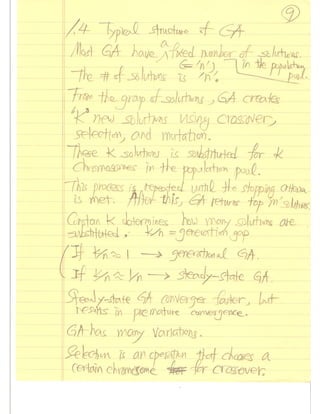 9
1.4 Typical structure of GA
Most GA have a fixed number of solutions
(= 'n') in the population pool.
The # of solutions is 'n'.
From the group of solutions, GA creates
"K" new solutions using crossover,
selection, and mutation.
These K solutions is substituted for K
chromosomes in the population pool.
This process is repeated until the stopping criterion
is met. After this, GA returns top 'm' solutions.
Constant K determines how many solutions are
substituted. k/n = generation gap
If k/n ≈ 1 → generational GA.
If k/n ≈ 1/n → steady-state GA.
Steady-state GA converges faster, but
results in premature convergence.
GA has many variations.
Selection is an operation that chooses a
certain chromosome for crossover.